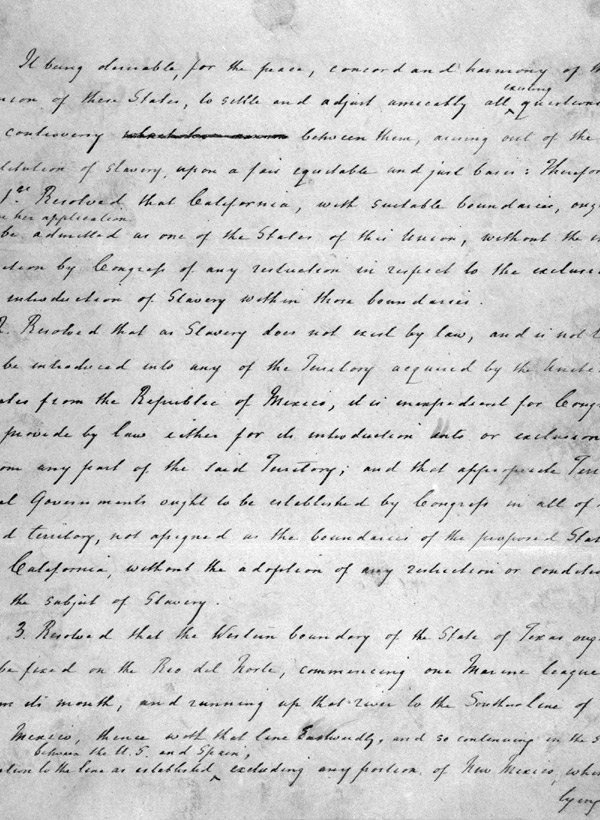 It being desirable, for the peace, concord and harmony of th
existing
nion of these States, to settle and adjust amicably all questions
controversy between them, arising out of the
stitution of Slavery, upon a fair equitable and just basis: Therefor
1st Resolved that California, with suitable boundaries, oug
her application
be admitted as one of the States of this Union, without the
ition by Congress of any restriction in respect to the exclusi
introduction of Slavery within those boundaries.
2. Resolved that as Slavery does not exist by law, and is not l
be introduced into any of the Territory acquired by the Unite
ates from the Republic of Mexico, it is inexpedient for Congr
provide by law either for its introduction into or exclusion
om any part of the said Territory; and that appropriate Terr
al Governments ought to be established by Congress in all of
d territory, not assigned as the boundaries of the proposed Stat
California, without the adoption of any restriction or conditio
the subject of Slavery.
3. Resolved that the Western boundary of the State of Texas oug
be fixed on the Rio del Norte, commencing one Marine league
om its mouth, and running up that river to the Southern line of
Mexico, thence with that line Eastwardly, and so continuing in the s
between the U.S. and Spain,
ction to the line as established excluding any portion of New Mexico, whe
lying